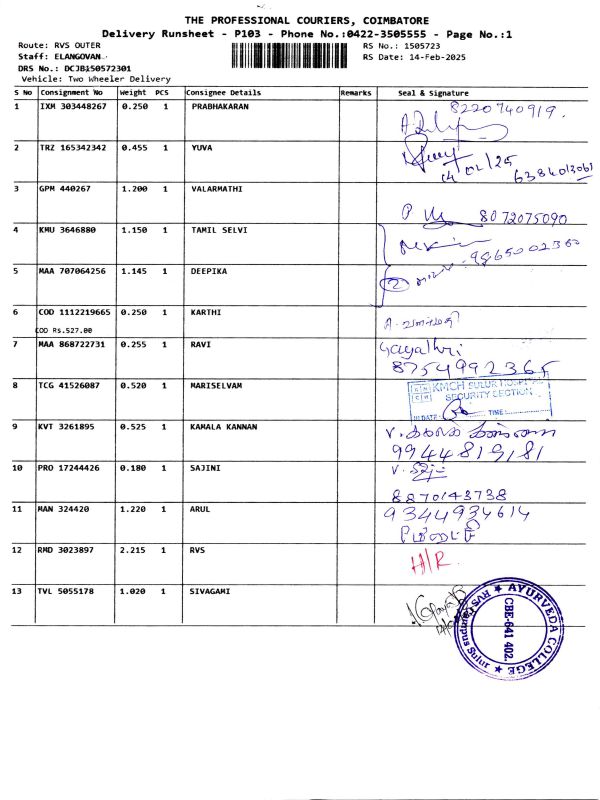 THE PROFESSIONAL COURIERS, COIMBATORE
Delivery Runsheet - P103 - Phone No.:0422-3505555 - Page No.:1
Route: RVS OUTER
RS No.: 1505723
Staff: ELANGOVAN
RS Date: 14-Feb-2025
DRS No.: DCJB150572301
Vehicle: Two Wheeler Delivery
S No Consignment No Weight PCS Consignee Details Remarks Seal & Signature
1 IXM 303448267 0.250 1 PRABHAKARAN 8220740919.
2 TRZ 165342342 0.455 1 YUVA
14/02/25 6384013061
3 GPM 440267 1.200 1 VALARMATHI
8072075090
4 KMU 3646880 1.150 1 TAMIL SELVI
9865002360
5 MAA 707064256 1.145 1 DEEPIKA
6 COD 1112219665 0.250 1 KARTHI
COD Rs.527.00
7 MAA 868722731 0.255 1 RAVI Gayathri
8754992365
8 TCG 41526087 0.520 1 MARISELVAM KMCH SULUR HOSPITAL
SECURITY SECTION
IN DATE: TIME:
9 KVT 3261895 0.525 1 KAMALA KANNAN
9944819181
10 PRO 17244426 0.180 1 SAJINI
8870143738
11 MAN 324420 1.220 1 ARUL 9344934614
12 RMD 3023897 2.215 1 RVS H/R
13 TVL 5055178 1.020 1 SIVAGAMI
RVS AYURVEDA COLLEGE
CBE-641 402.
Campus Sulur